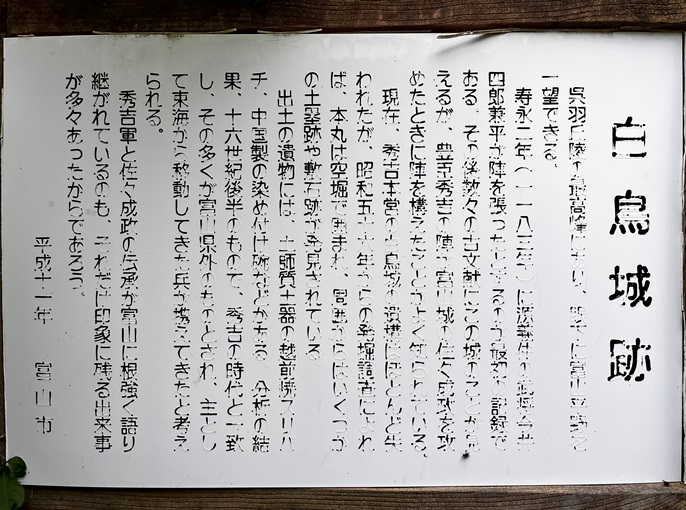 白鳥城跡
呉羽丘陵の最高峰にあり、眼下に富山平野を
一望できる。
寿永二年(一一八三年)に源義仲の武将今井
四郎兼平が陣を張ったとするのが最初の記録で
ある。その後数々の古文献にこの城のことが見
えるが、豊臣秀吉の陣が富山城の佐々成政を攻
めたときに陣を構えたことがよく知られている。
現在、秀吉本営の白鳥城の遺構はほとんど失
われたが、昭和五十六年からの発掘調査によれ
ば、本丸は空堀で囲まれ、周囲からはいくつか
の土塁跡や敷石跡が発見されている
出土の遺物には、土師質土器の越前焼スリバ
チ、中国製の染め付け碗などがある。分析の結
果、十六世紀後半のもので、秀吉の時代と一致
し、その多くが富山県外のものとされ、主とし
て東海から移動してきた兵が携えてきたと考え
られる。
秀吉軍と佐々成政の伝承が富山に根強く語り
継がれているのも、それだけ印象に残る出来事
が多々あったからであろう。
平成十一年 富山市